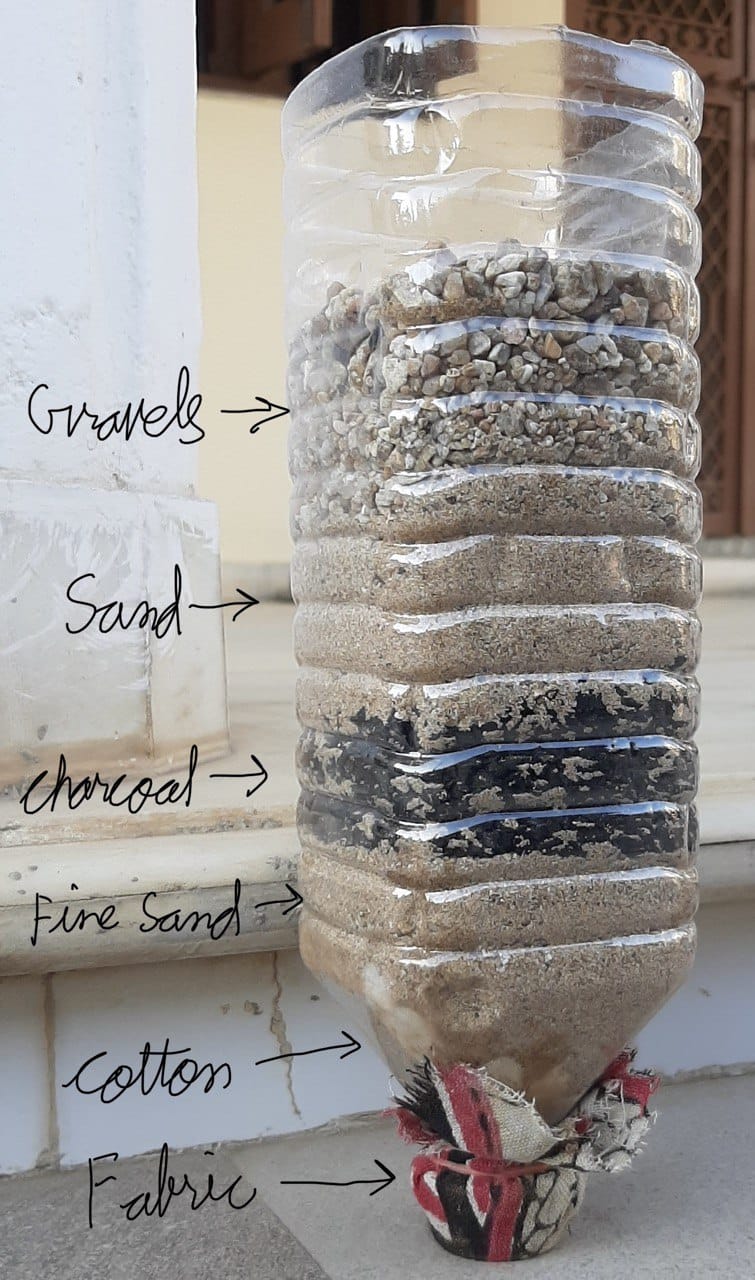 Gravels
Sand
charcoal
Fine Sand
Cotton
Fabric